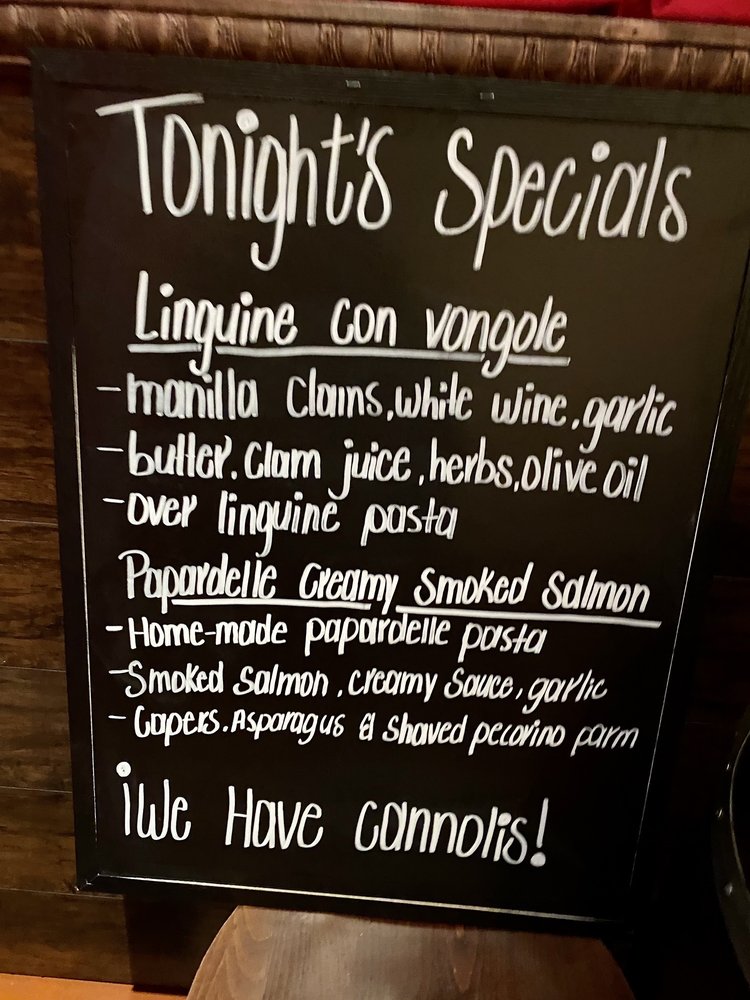 Tonight's Specials
Linguine con vongole
- manilla Clams, white wine, garlic
- butter, Clam juice, herbs, olive oil
- over linguine pasta
Papardelle Creamy Smoked Salmon
- Home-made papardelle pasta
- Smoked Salmon, creamy Sauce, garlic
- Capers, Asparagus & Shaved pecorino parm
¡We Have cannolis!